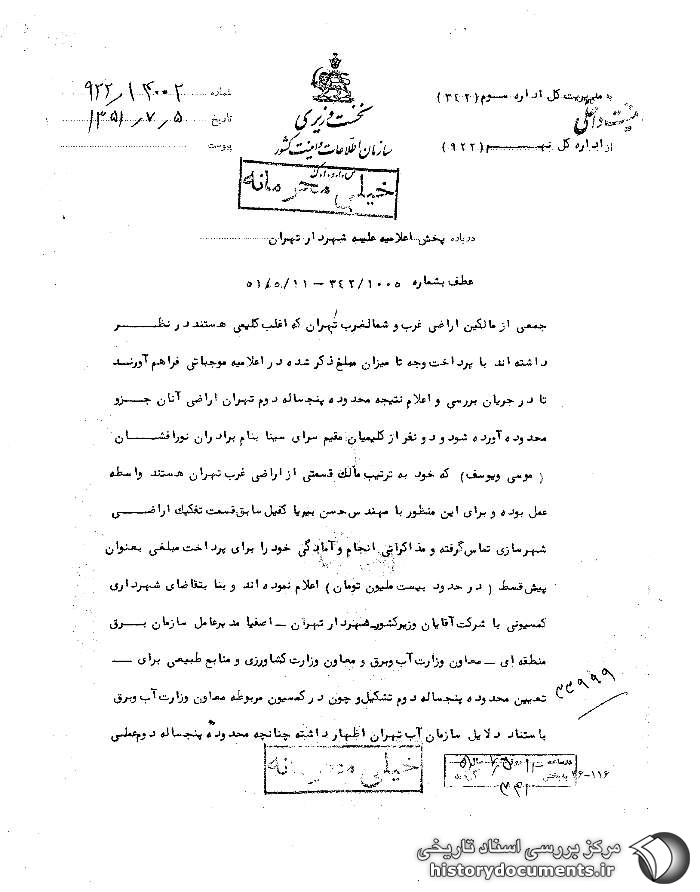 به مدیریت کل اداره سوم (۳۴۲)
از اداره کل تهـــــران (۹۲۲)
نخست وزیری
سازمان اطلاعات و امنیت کشور
س.ا.و.ا.ک
شماره ۹۲۲/۱۴۰۰۲
تاریخ ۱۳۵۱/۷/۵
پیوست
خیلی محرمانه
درباره پخش اعلامیه علیه شهردار تهران
عطف بشماره ۳۴۲/۱۰۰۵ - ۵۱/۵/۱۱
جمعی از مالکین اراضی غرب و شمالغرب تهران که اغلب کلیمی هستند در نظـــر
داشته اند با پرداخت وجه تا میزان مبلغ ذکر شده در اعلامیه موجباتی فراهم آورنـد
تا در جریان بررسی و اعلام نتیجه محدوده پنجساله دوم تهران اراضی آنان جـزو
محدوده آورده شود و دو نفر از کلیمیان مقیم سرای سینا بنام برادران نورافشــان
( موسی ویوسف ) که خود به ترتیب مالک قسمتی از اراضی غرب تهران هستند واسطه
عمل بوده و برای این منظور با مهندس حسن بیریا کفیل سابق قسمت تفکیک اراضـی
شهرسازی تماس گرفته و مذاکراتی انجام و آمادگی خود را برای پرداخت مبلغی بعنوان
پیش قسط ( در حدود بیست ملیون تومان ) اعلام نموده اند و بنا بتقاضای شهرداری
کمسیونی با شرکت آقایان وزیرکشور_شهردار تهران _ اصفیا مدیرعامل سازمان بـرق
منطقه ای _ معاون وزارت آب وبرق و معاون وزارت کشاورزی و منابع طبیعی برای _
تعیین محدوده پنجساله دوم تشکیل و چون در کمسیون مربوطه معاون وزارت آب وبرق
باستناد دلایل سازمان آب تهران اظهار داشته چنانچه محدوده پنجساله دوم عملی
۳۳۹۹۹
خیلی محرمانه
۳۶-۱۱۶
۳۴۱
مرکز بررسی اسناد تاریخی
historydocuments.ir